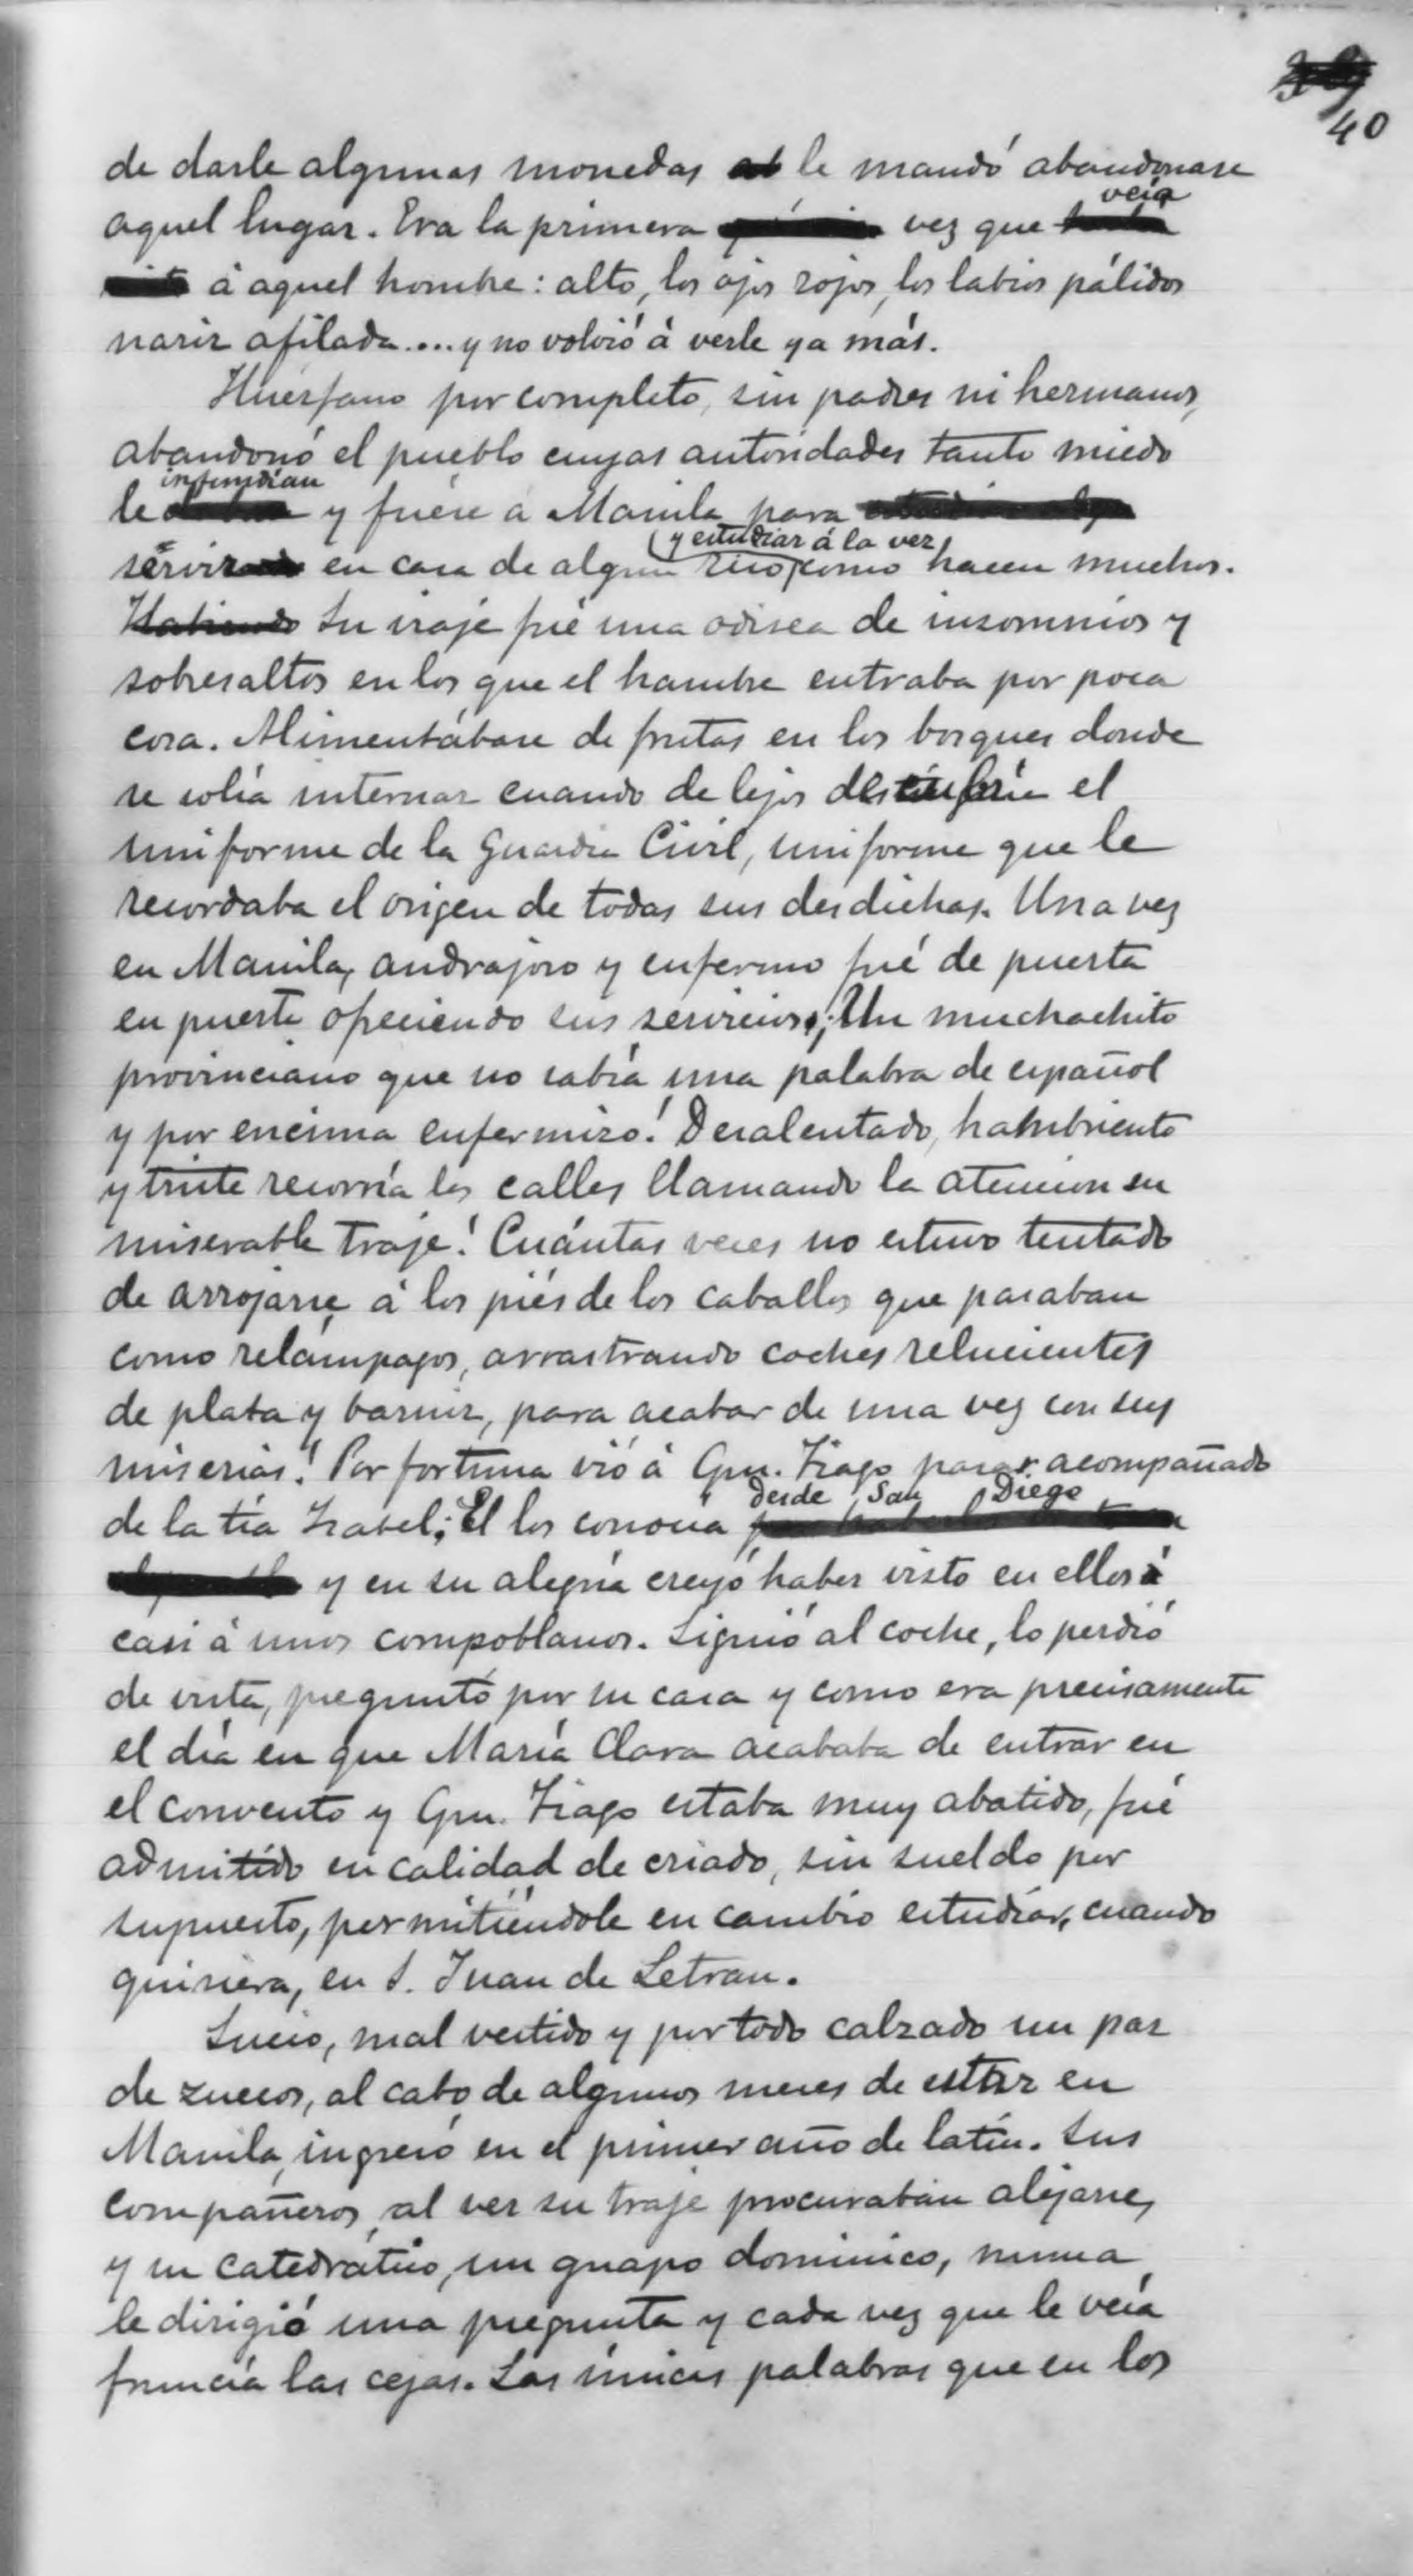 40
de darle algunas monedas le mandó abandonase
aquel lugar. Era la primera vez que veía
á aquel hombre: alto, los ojos rojos, los labios pálidos
nariz afilada.... y no volvió á verle ya más.
Huérfano por completo, sin padres ni hermanos,
abandonó el pueblo cuyas autoridades tanto miedo
le infundían y fuése á Manila para
servir en casa de algun rico y estudiar á la vez, como hacen muchos.
Su viaje fué una odisea de insomnios y
sobresaltos en los que el hambre entraba por poca
cosa. Alimentábase de frutas en los bosques donde
se solía internar cuando de lejos descubría el
uniforme de la Guardia Civil, uniforme que le
recordaba el origen de todas sus desdichas. Una vez
en Manila, andrajoso y enfermo fué de puerta
en puerta ofreciendo sus servicios; ¡Un muchachito
provinciano que no sabía una palabra de español
y por encima enfermizo! Desalentado, hambriento
y triste recorría las calles llamando la atencion su
miserable traje! Cuántas veces no estuvo tentado
de arrojarse á los piés de los caballos que pasaban
como relámpagos, arrastrando coches relucientes
de plata y barniz, para acabar de una vez con sus
miserias! Por fortuna vió á Cpn. Tiago pasar acompañado
de la tía Isabel; El los conocía desde San Diego
y en su alegría creyó haber visto en ellos á
casi á unos compoblanos. Siguió al coche, lo perdió
de vista, preguntó por su casa y como era precisamente
el día en que María Clara acababa de entrar en
el convento y Cpn. Tiago estaba muy abatido, fué
admitido en calidad de criado, sin sueldo por
supuesto, permitiéndole en cambio estudiar, cuando
quisiera, en S. Juan de Letran.
Sucio, mal vestido y por todo calzado un par
de zuecos, al cabo de algunos meses de estar en
Manila, ingresó en el primer año de latín. Sus
compañeros, al ver su traje procuraban alejarse,
y su catedrático, un guapo dominico, nunca
le dirigió una pregunta y cada vez que le veía
fruncía las cejas. Las únicas palabras que en los